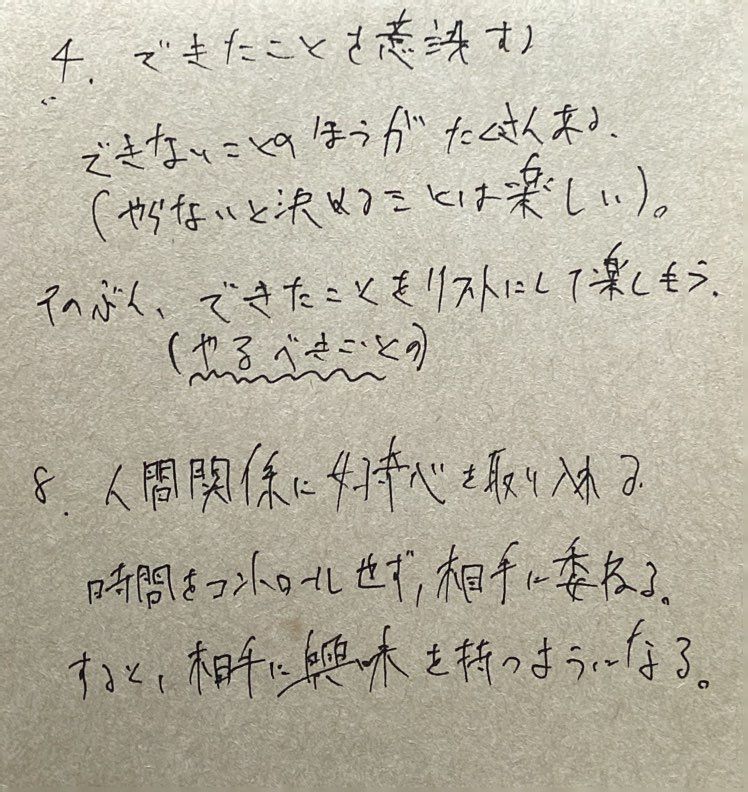 4. できたことを意識する
できないことのほうがたくさん来る.
(やらないと決めることは楽しい)。
そのぶん、できたことをリストにして楽しもう.
(やるべきことの)
8. 人間関係に好奇心を取り入れる
時間をコントロールせず, 相手に委ねる。
すると, 相手に興味を持つようになる。